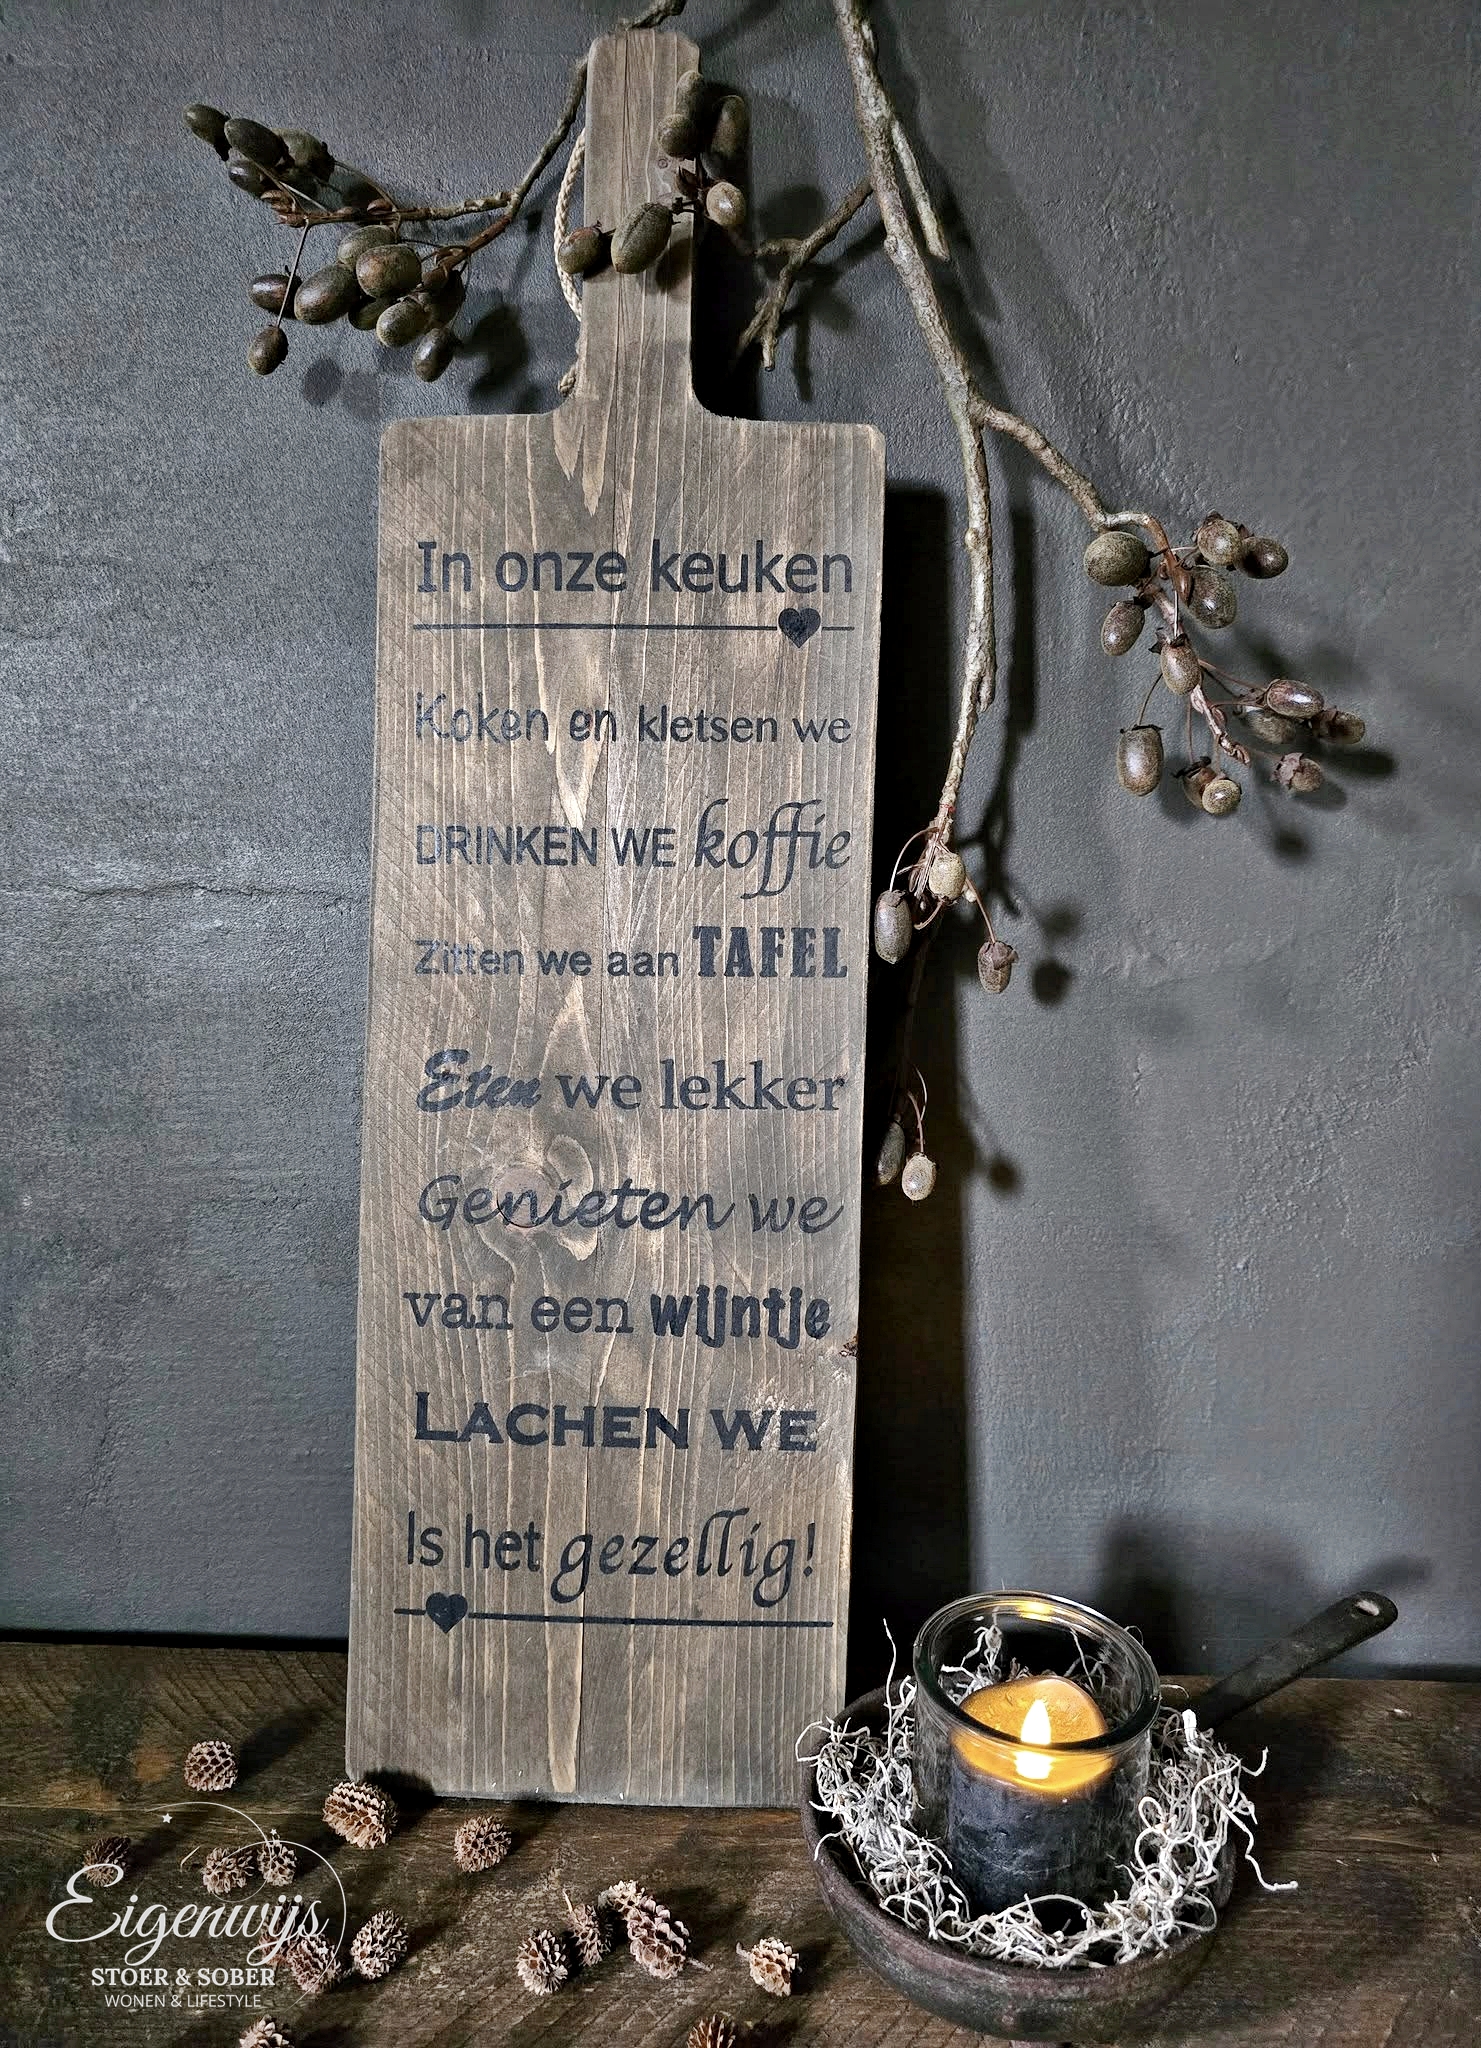 In onze keuken
Koken en kletsen we
DRINKEN WE koffie
Zitten we aan TAFEL
Eten we lekker
Genieten we
van een wijntje
LACHEN WE
Is het gezellig!
Eigenwijs
STOER & SOBER
WONEN & LIFESTYLE